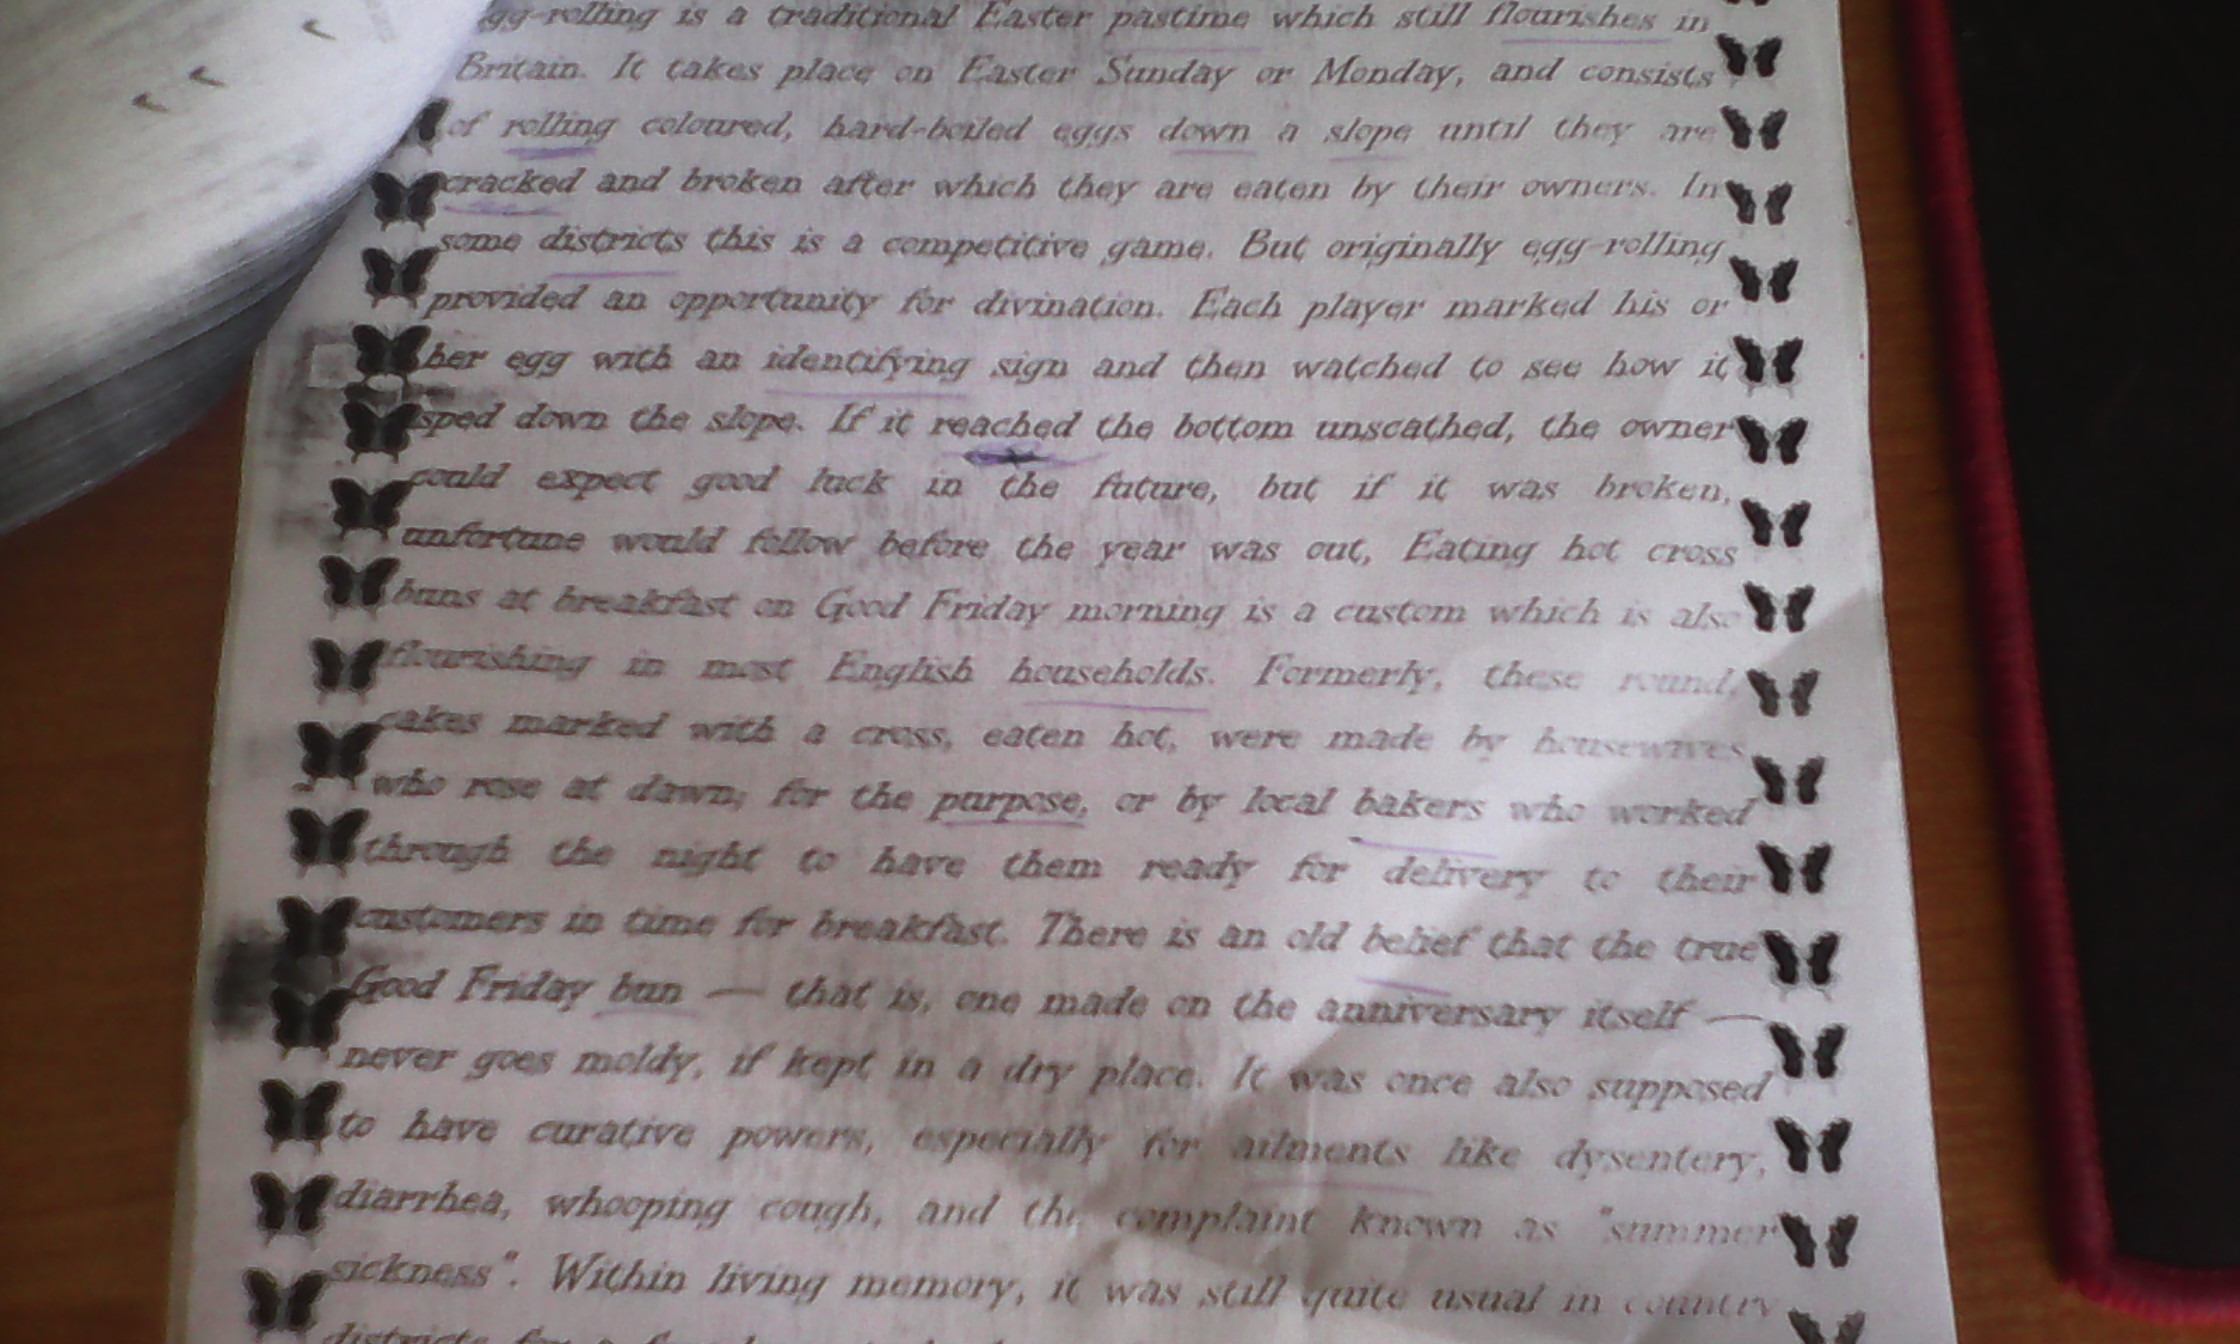 gg-rolling is a traditional Easter pastime which still flourishes in
Britain. It takes place on Easter Sunday or Monday, and consists
of rolling coloured, hard-boiled eggs down a slope until they are
cracked and broken after which they are eaten by their owners. In
some districts this is a competitive game. But originally egg-rolling
provided an opportunity for divination. Each player marked his or
her egg with an identifying sign and then watched to see how it
sped down the slope. If it reached the bottom unscathed, the owner
could expect good luck in the future, but if it was broken,
unfortune would follow before the year was out, Eating hot cross
buns at breakfast on Good Friday morning is a custom which is also
flourishing in most English households. Formerly, these round,
cakes marked with a cross, eaten hot, were made by housewives
who rose at dawn; for the purpose, or by local bakers who worked
through the night to have them ready for delivery to their
customers in time for breakfast. There is an old belief that the true
Good Friday bun — that is, one made on the anniversary itself —
never goes moldy, if kept in a dry place. It was once also supposed
to have curative powers, especially for ailments like dysentery,
diarrhea, whooping cough, and the complaint known as "summer
sickness". Within living memory, it was still quite usual in country
districts for a few